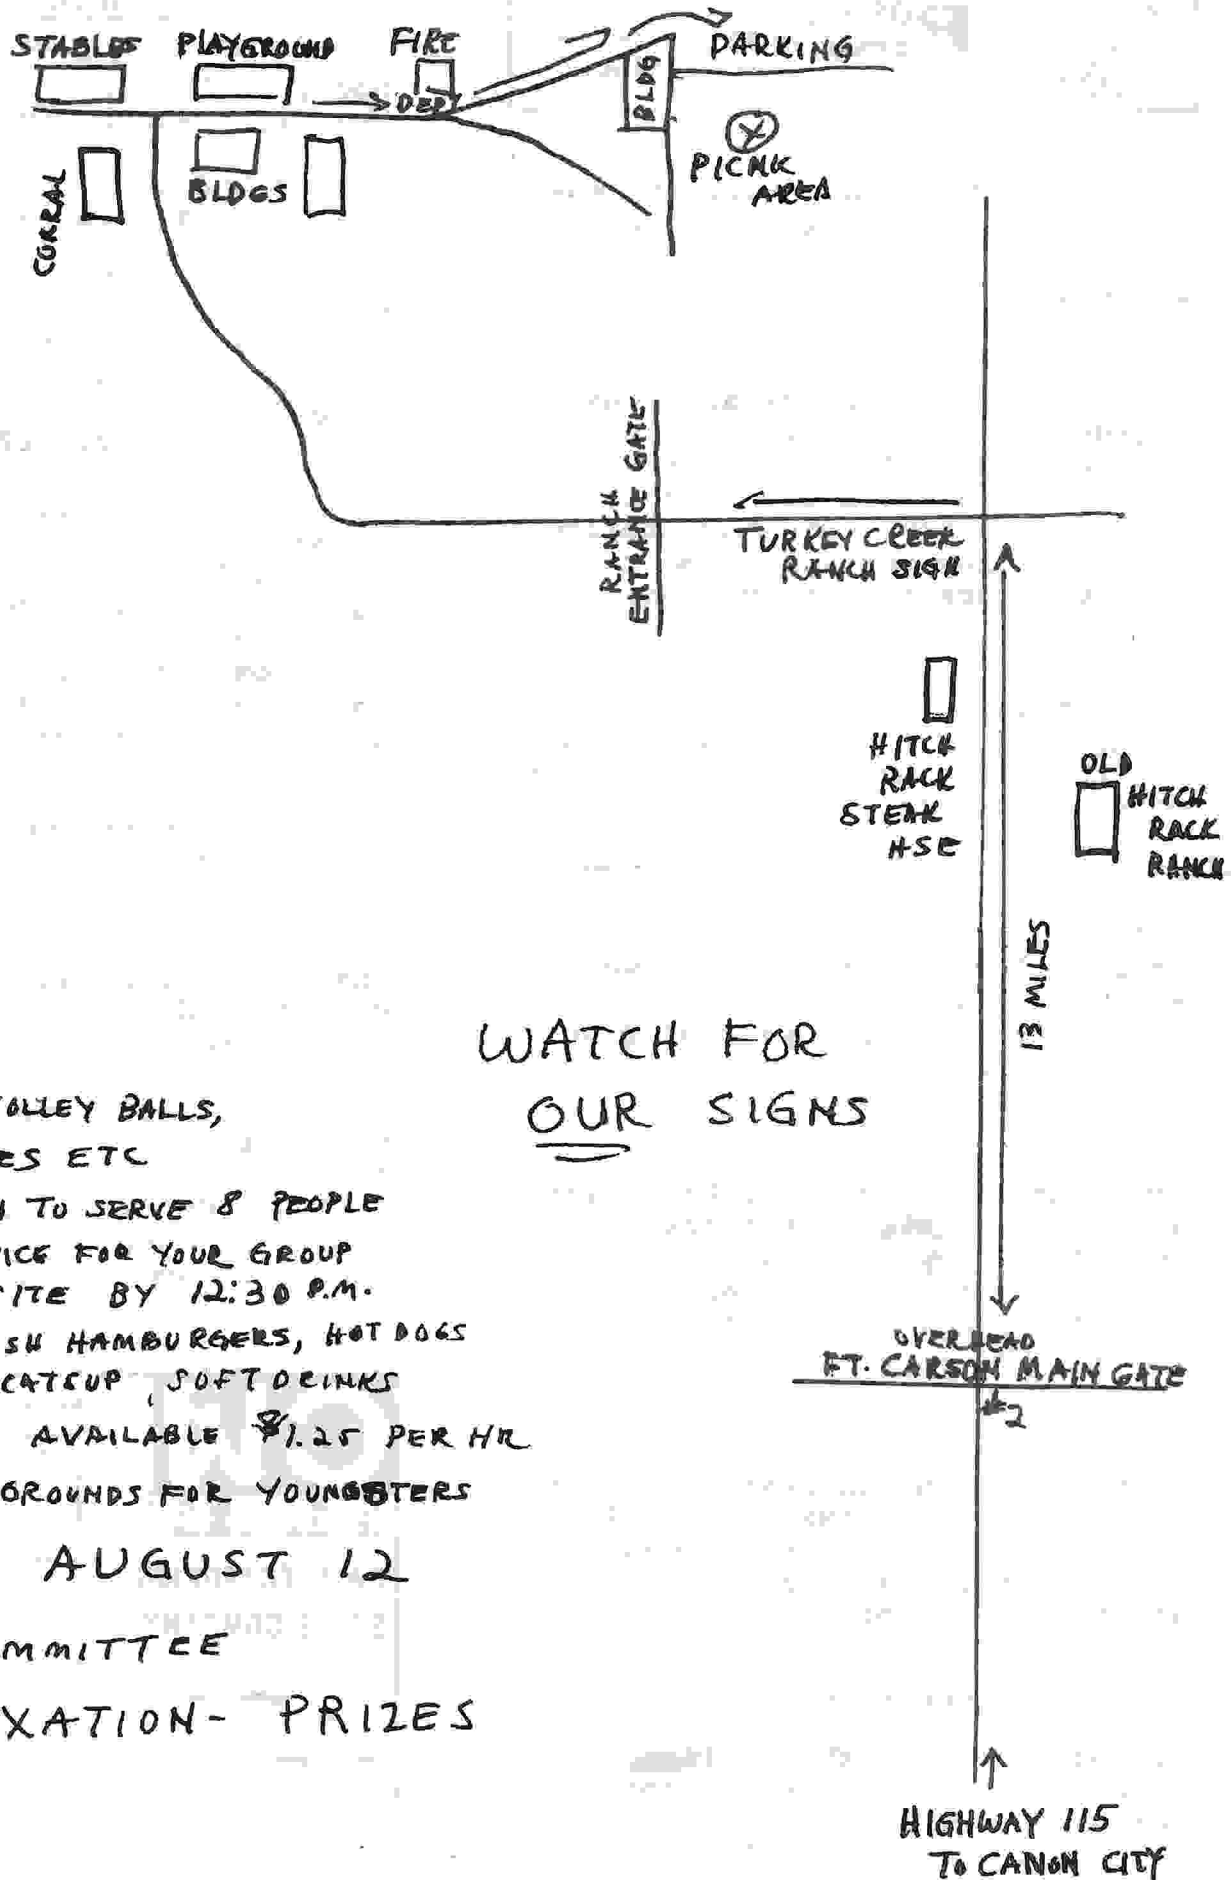 STABLES PLAYGROUND FIRE DEPT
BLDG
PARKING
PICNIC
AREA
CORRAL
BLDGS
RANCH
ENTRANCE GATE
TURKEY CREEK
RANCH SIGN
HITCH
RACK
STEAK
HSE
OLD
HITCH
RACK
RANCH
13 MILES
WATCH FOR
OUR SIGNS
OLLEY BALLS,
ES ETC
TO SERVE 8 PEOPLE
ICE FOR YOUR GROUP
ITE BY 12:30 P.M.
SH HAMBURGERS, HOT DOGS
CATSUP, SOFT DRINKS
AVAILABLE $1.25 PER HR
GROUNDS FOR YOUNGSTERS
AUGUST 12
MMITTEE
XATION- PRIZES
OVERHEAD
FT. CARSON MAIN GATE
#2
HIGHWAY 115
TO CANON CITY